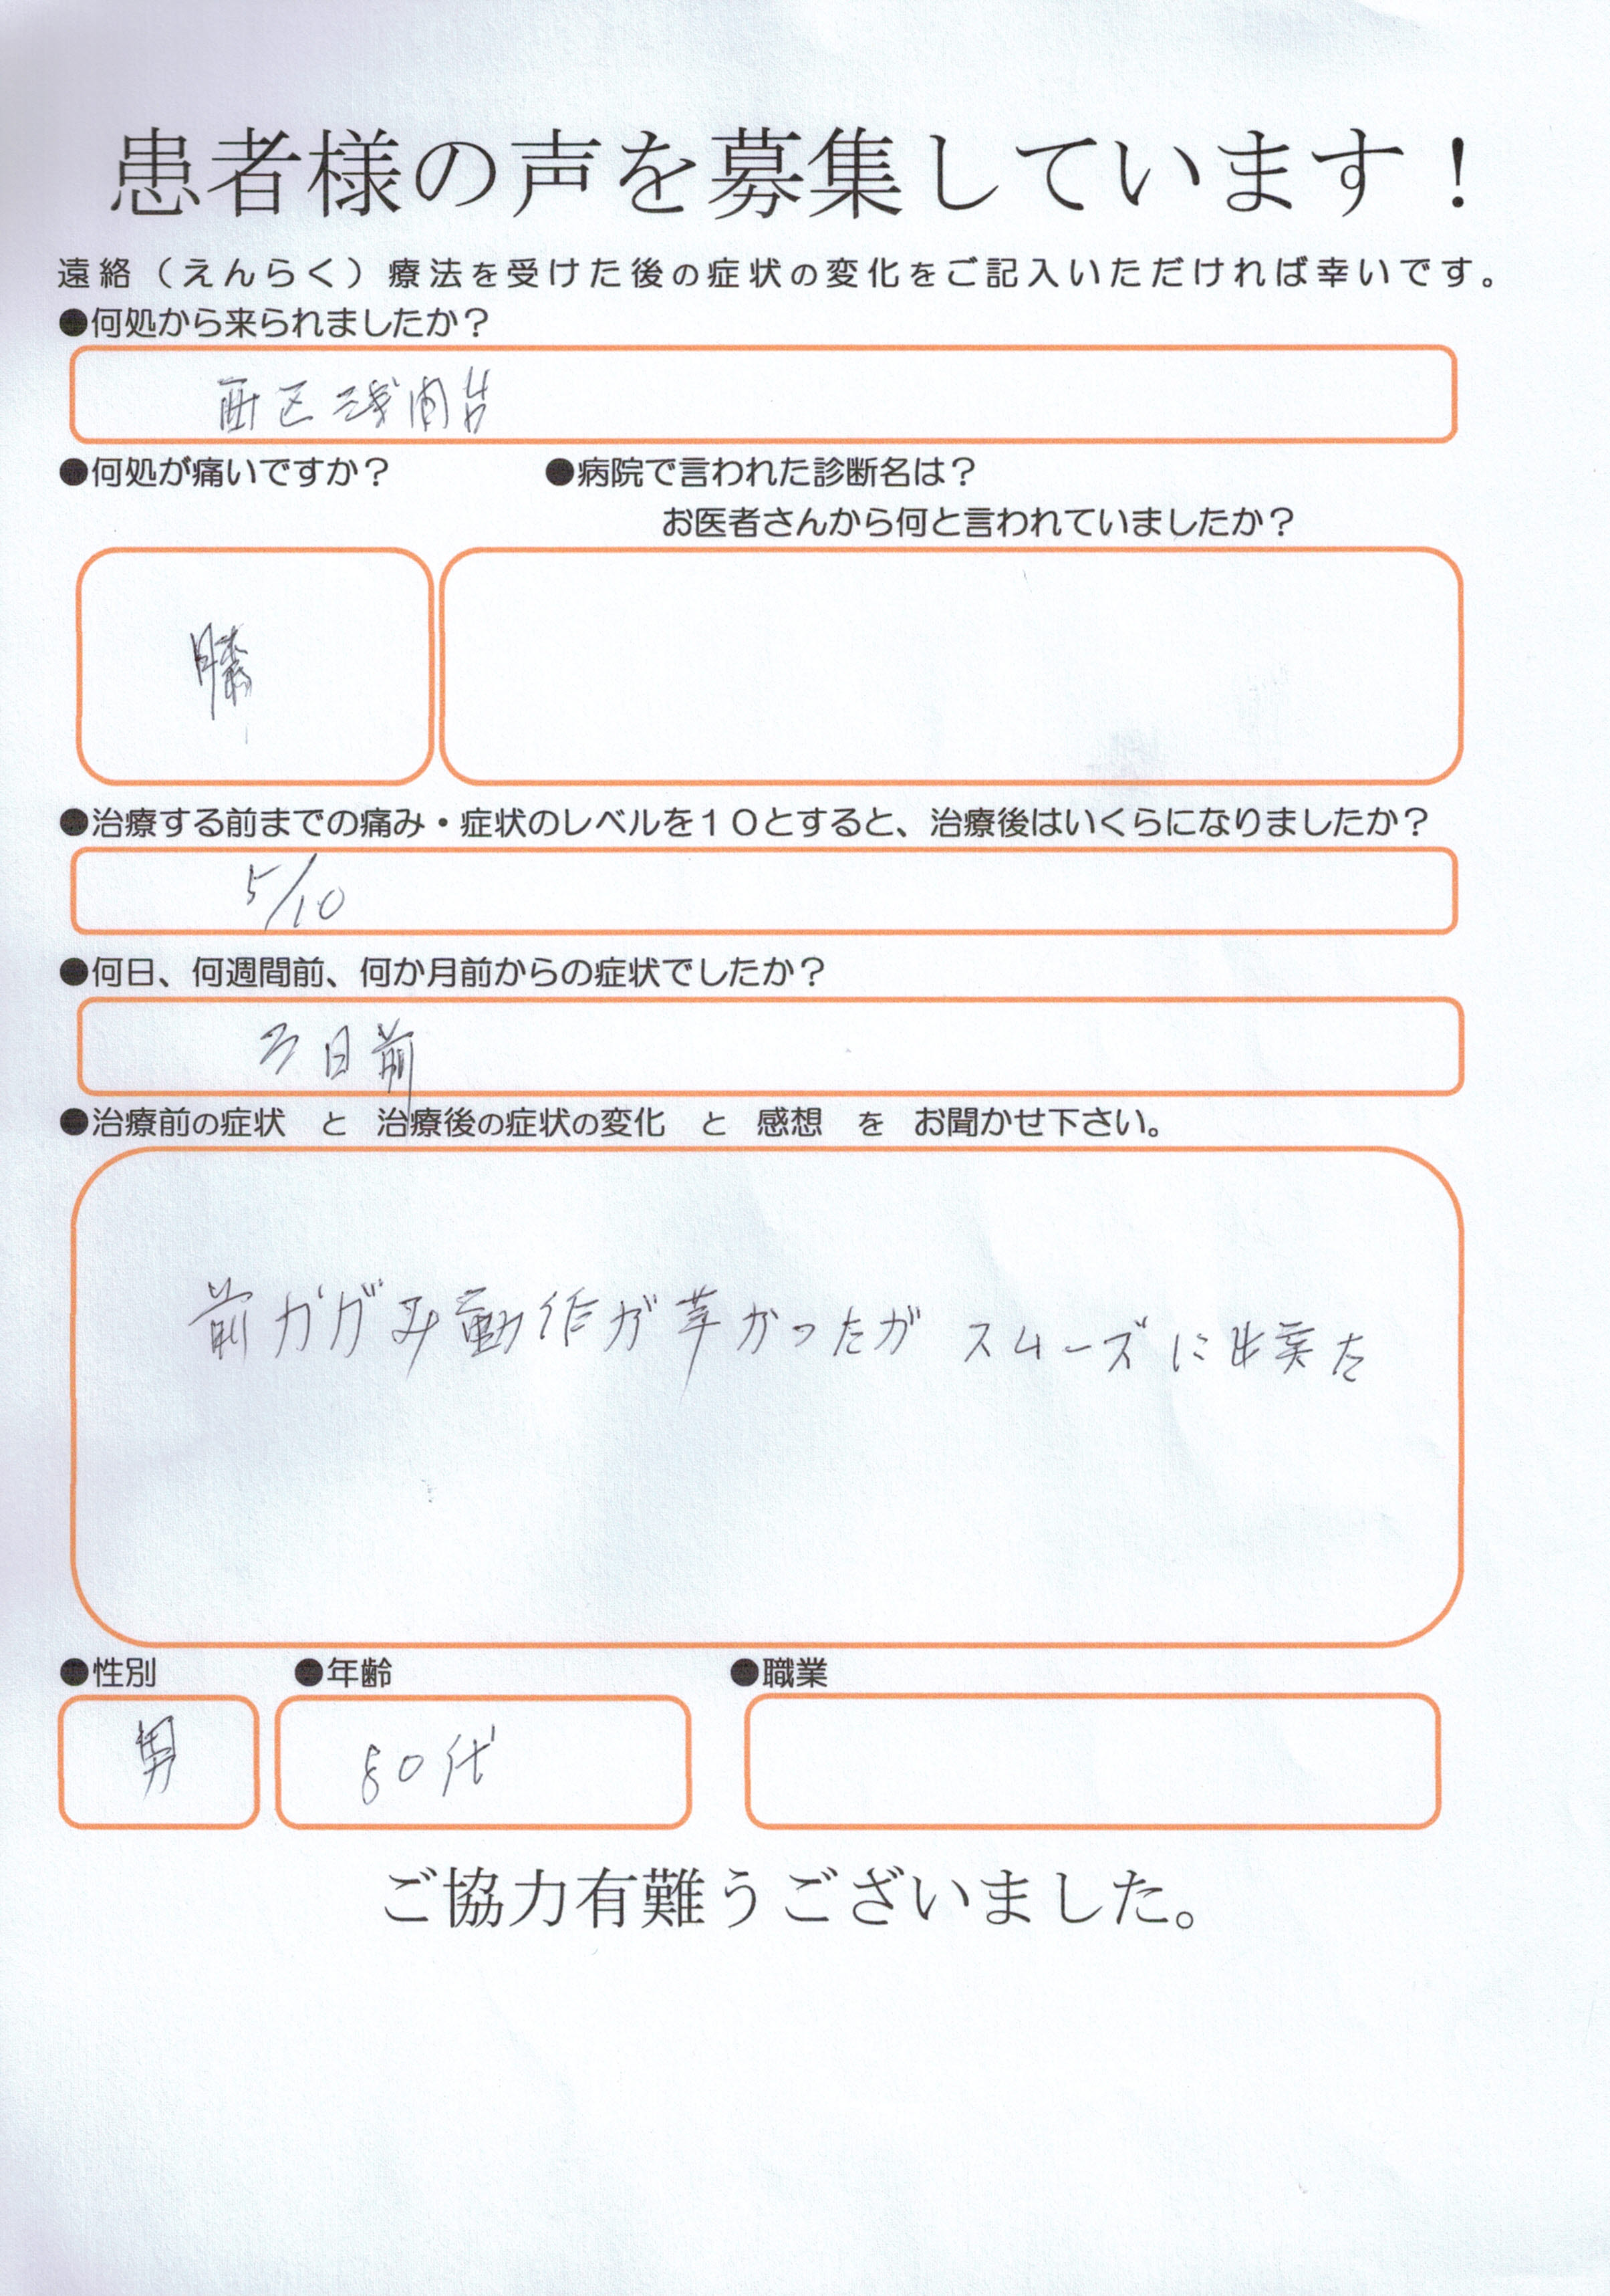 患者様の声を募集しています！
遠絡（えんらく）療法を受けた後の症状の変化をご記入いただければ幸いです。
●何処から来られましたか？
西区浅間台
●何処が痛いですか？ ●病院で言われた診断名は？
お医者さんから何と言われていましたか？
膝
●治療する前までの痛み・症状のレベルを１０とすると、治療後はいくらになりましたか？
5/10
●何日、何週間前、何か月前からの症状でしたか？
3日前
●治療前の症状　と　治療後の症状の変化　と　感想　を　お聞かせ下さい。
前かがみ動作が辛かったが スムーズに出来た
●性別 ●年齢 ●職業
男 80代
ご協力有難うございました。